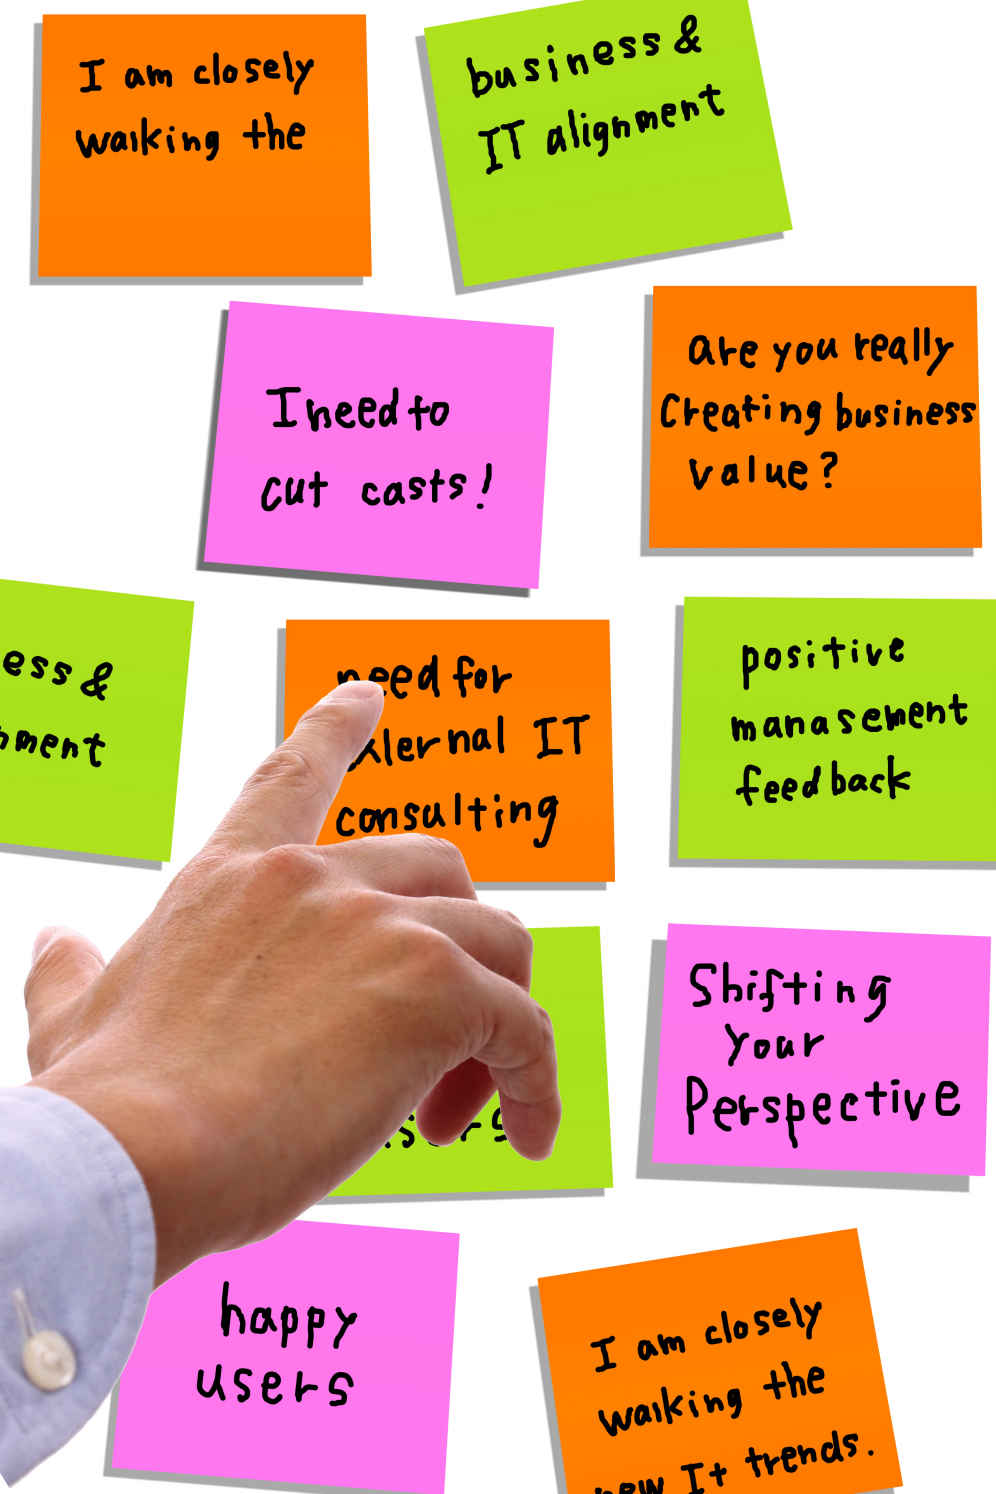 I am closely
walking the
business &
IT alignment
I need to
cut casts!
are you really
Creating business
value?
ess &
nment
need for
exlernal IT
consulting
positive
manasement
feedback
users
Shifting
your
Perspective
happy
users
I am closely
walking the
new It trends.